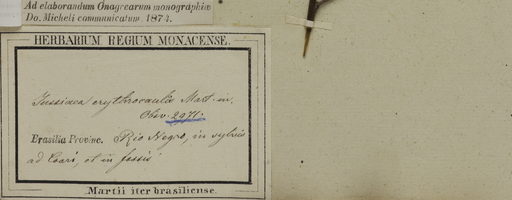 Ad elaborandum Onagracearum monographiæ
Do. Micheli communicatum. 1874.
HERBARIUM REGIUM MONACENSE.
Jussiaea erythrocaula Mart. in.
Obsv. 2971.
Brasilia Provinc. Rio Negro, in sylvis
ad Coari, et in fossis
Martii iter brasiliense.